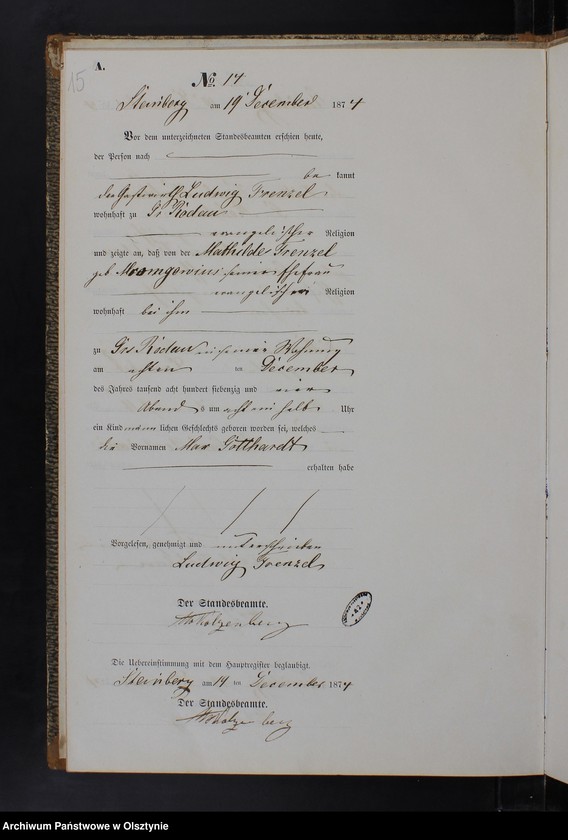 15
A.
No. 14
Steinberg am 19 December 1874
Vor dem unterzeichneten Standesbeamten erschien heute,
der Person nach
be kannt
der Gastwirth Ludwig Frenzel
wohnhaft zu Gr Rödau
evangelischer Religion
und zeigte an, daß von der Mathilde Frenzel
geb Mromgowius seiner Ehefrau
evangelischer Religion
wohnhaft bei ihm
zu Gr Rödau in seiner Wohnung
am achten ten December
des Jahres tausend acht hundert siebenzig und vier
Abend s um acht ein halb Uhr
ein Kind männ lichen Geschlechts geboren worden sei, welches
die Vornamen Max Gotthardt
erhalten habe
Vorgelesen, genehmigt und unterschrieben
Ludwig Frenzel
Der Standesbeamte.
Die Uebereinstimmung mit dem Hauptregister beglaubigt.
Steinberg am 19 ten December 1874
Der Standesbeamte.
Archiwum Państwowe w Olsztynie